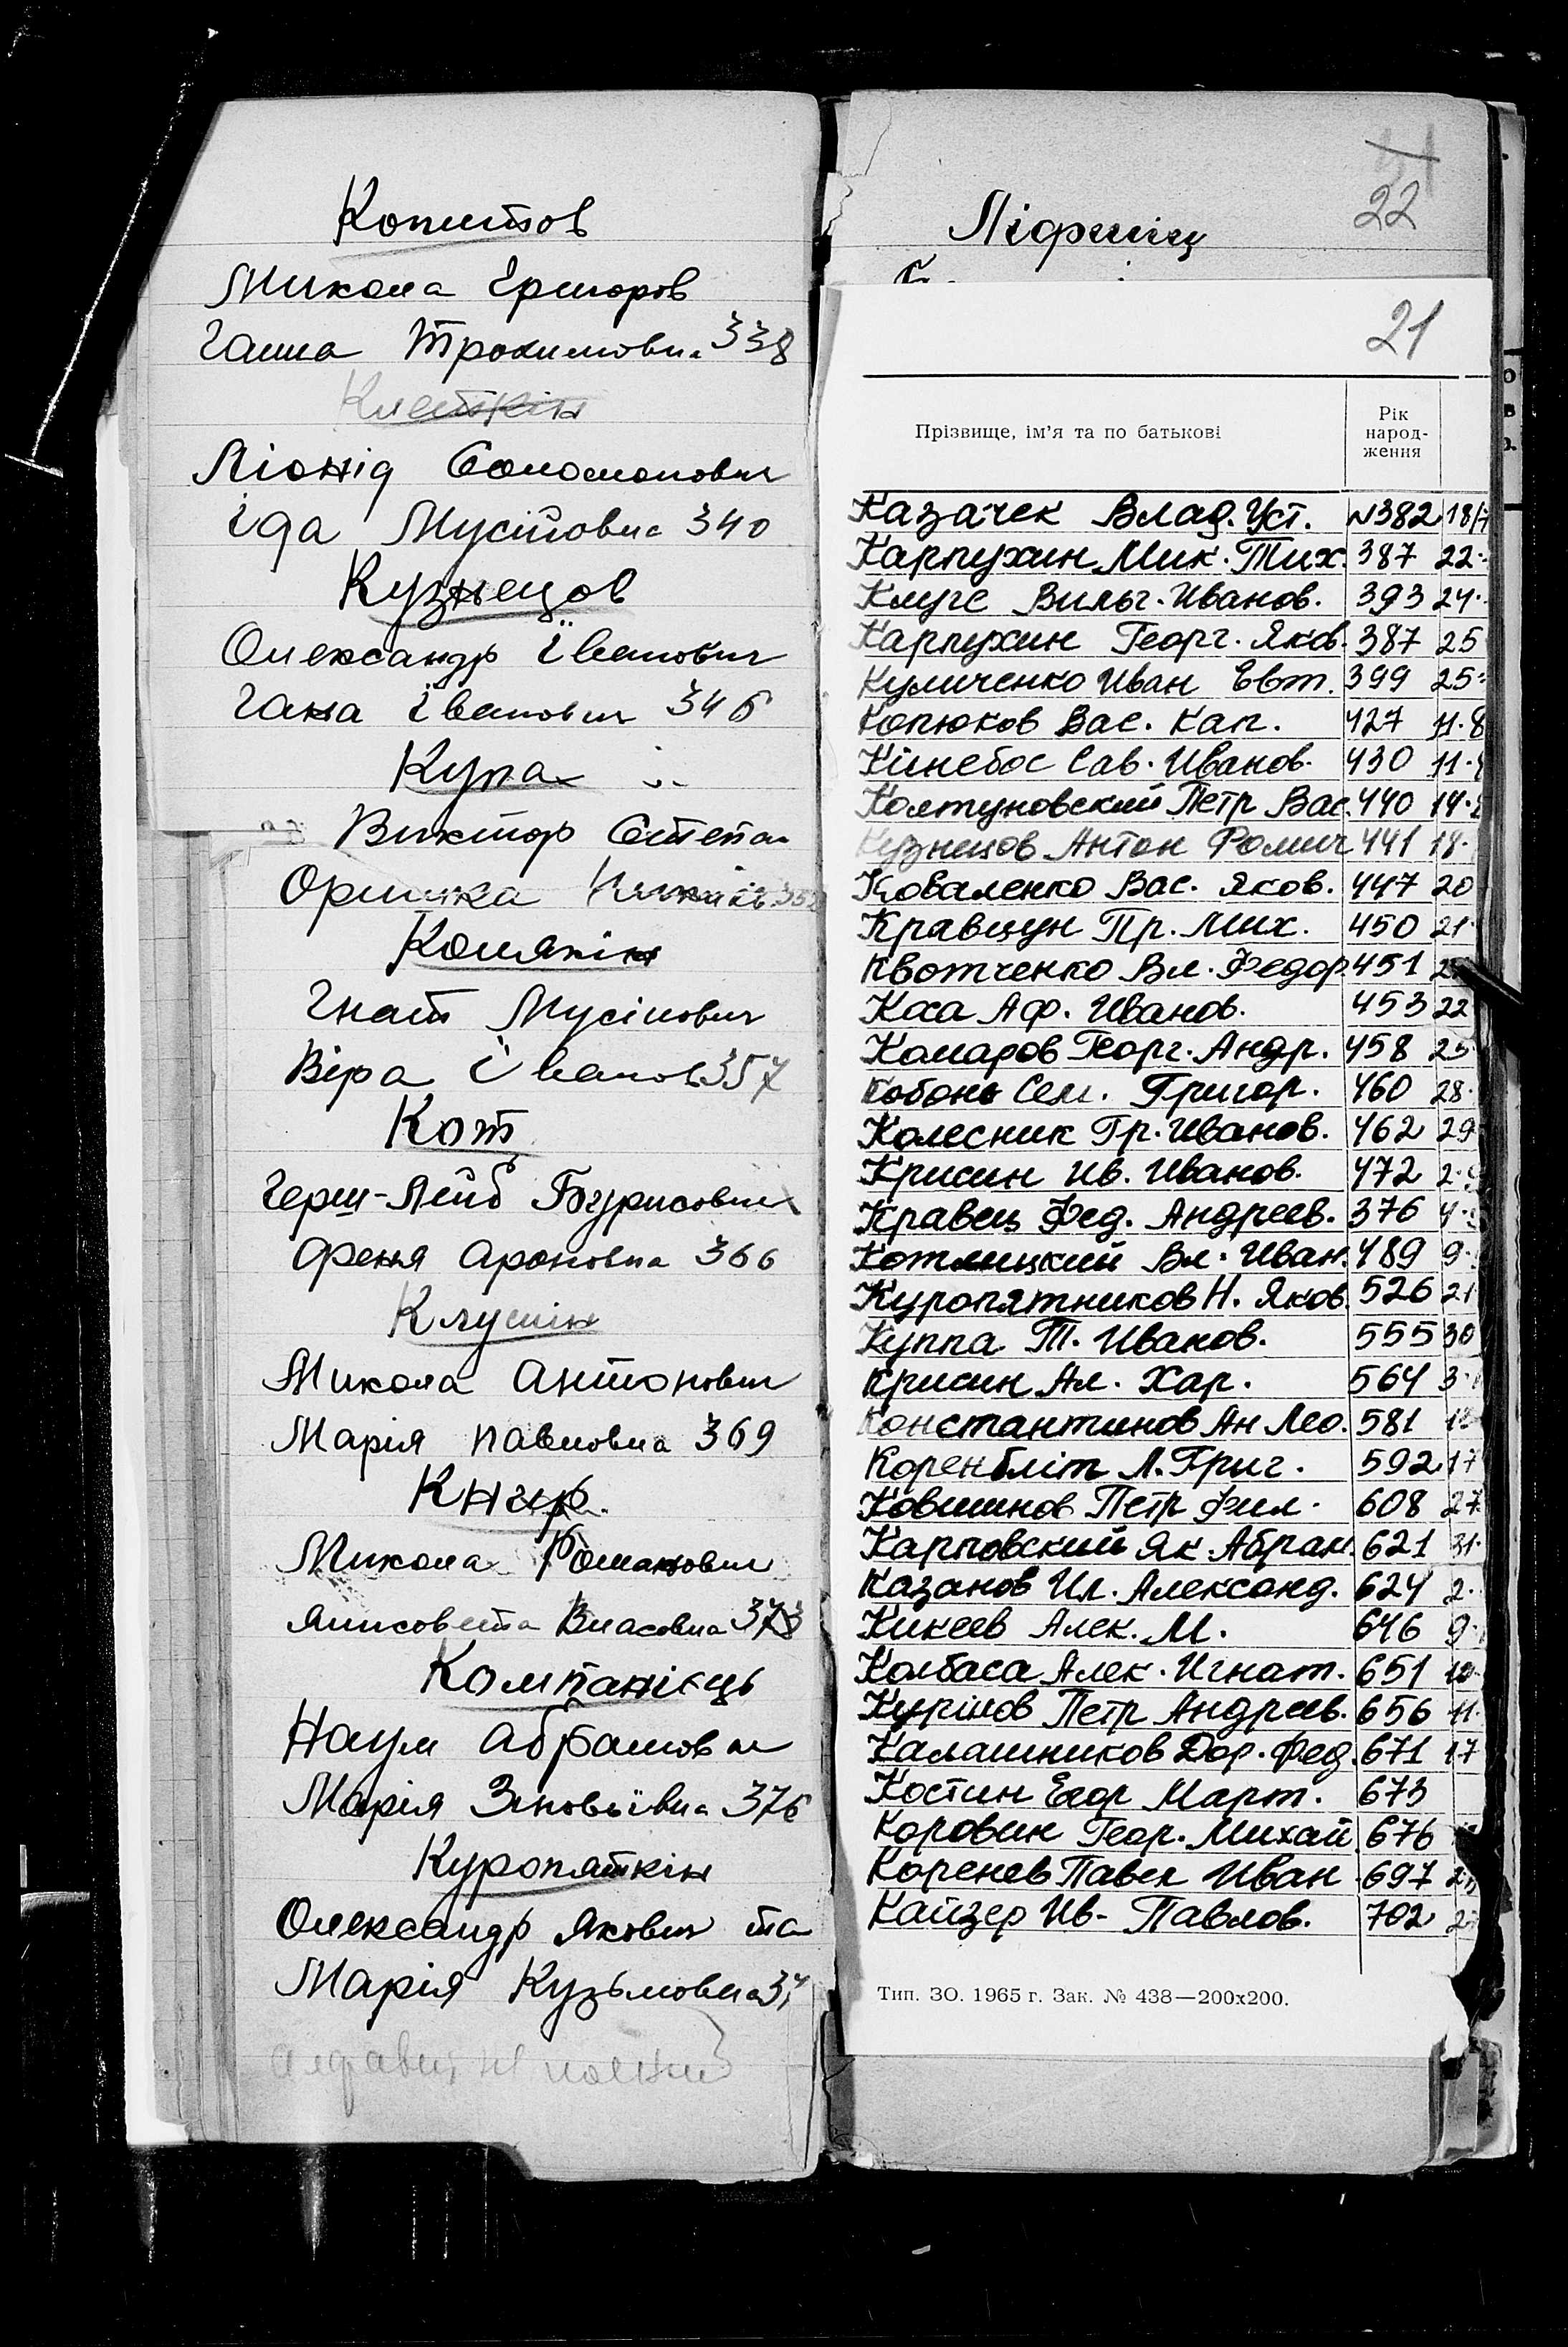 Копитов
Микола Григоров
Ганна Трохимовна 338
Клеткін
Ліонід Соломонович
Іда Мусійовна 340
Кузнецов
Олександр Іванович
Гана Іванович 346
Купа
Виктор Степан
Оришка
Колякін
Гнат Мусійович
Віра Іванов 357
Кот
Герш-Лейб Бгурисович
Феня Ароновна 366
Клушін
Микола Антонович
Марія Павловна 369
Книр
Микола Романович
Лисовета Власовна 373
Компанієць
Наум Абрамович
Марія Зиновьївна 376
Куропяткін
Олександр Якович та
Марія Кузьмовна 37
22
Ліфшиц
21
Прізвище, ім'я та по батькові
Рік народ-ження
Казачек Влад. Уст. №382 18/7
Карпухин Мик. Тих. 387 22
Клуге Вильг. Иванов. 393 24
Карпухин Георг. Яков. 387 25
Куличенко Иван Евт. 399 25
Копюков Вас. Кап. 427 11.8
Кинебос Сав. Иванов. 430 11.
Колтуновский Петр Вас. 440 14.
Кузнецов Антон Фомич 441 18.
Коваленко Вас. Яков. 447 20
Кравцун Пр. Мих. 450 21.
Квотченко Вл. Федор. 451
Коса Аф. Иванов. 453 22
Комаров Георг. Андр. 458 25
Кобонь Сем. Григор. 460 28.
Колесник Гр. Иванов. 462 29
Крисин Ив. Иванов. 472 2.
Кравец Фед. Андреев. 376 4.
Котлицкий Вл. Иван. 489 9.
Куропятников Н. Яков. 526 21
Куппа Т. Иванов. 555 30
Крисин Ал. Хар. 564 3.
Константинов Ан Лео. 581
Коренбліт Л. Григ. 592 17
Ковшинов Петр Фил. 608 27
Карповский Як. Абрам. 621 31.
Казанов Ил. Александ. 624 2.
Кикеев Алек. М. 646 9.
Колбаса Алек. Игнат. 651 10
Курінов Петр Андреев. 656 11.
Калашников Дор. Фед. 671 17
Костин Егор Март. 673
Коровин Геор. Михай 676
Коренев Павел Иван 697
Кайзер Ив. Павлов. 702
Тип. ЗО. 1965 г. Зак. № 438—200х200.